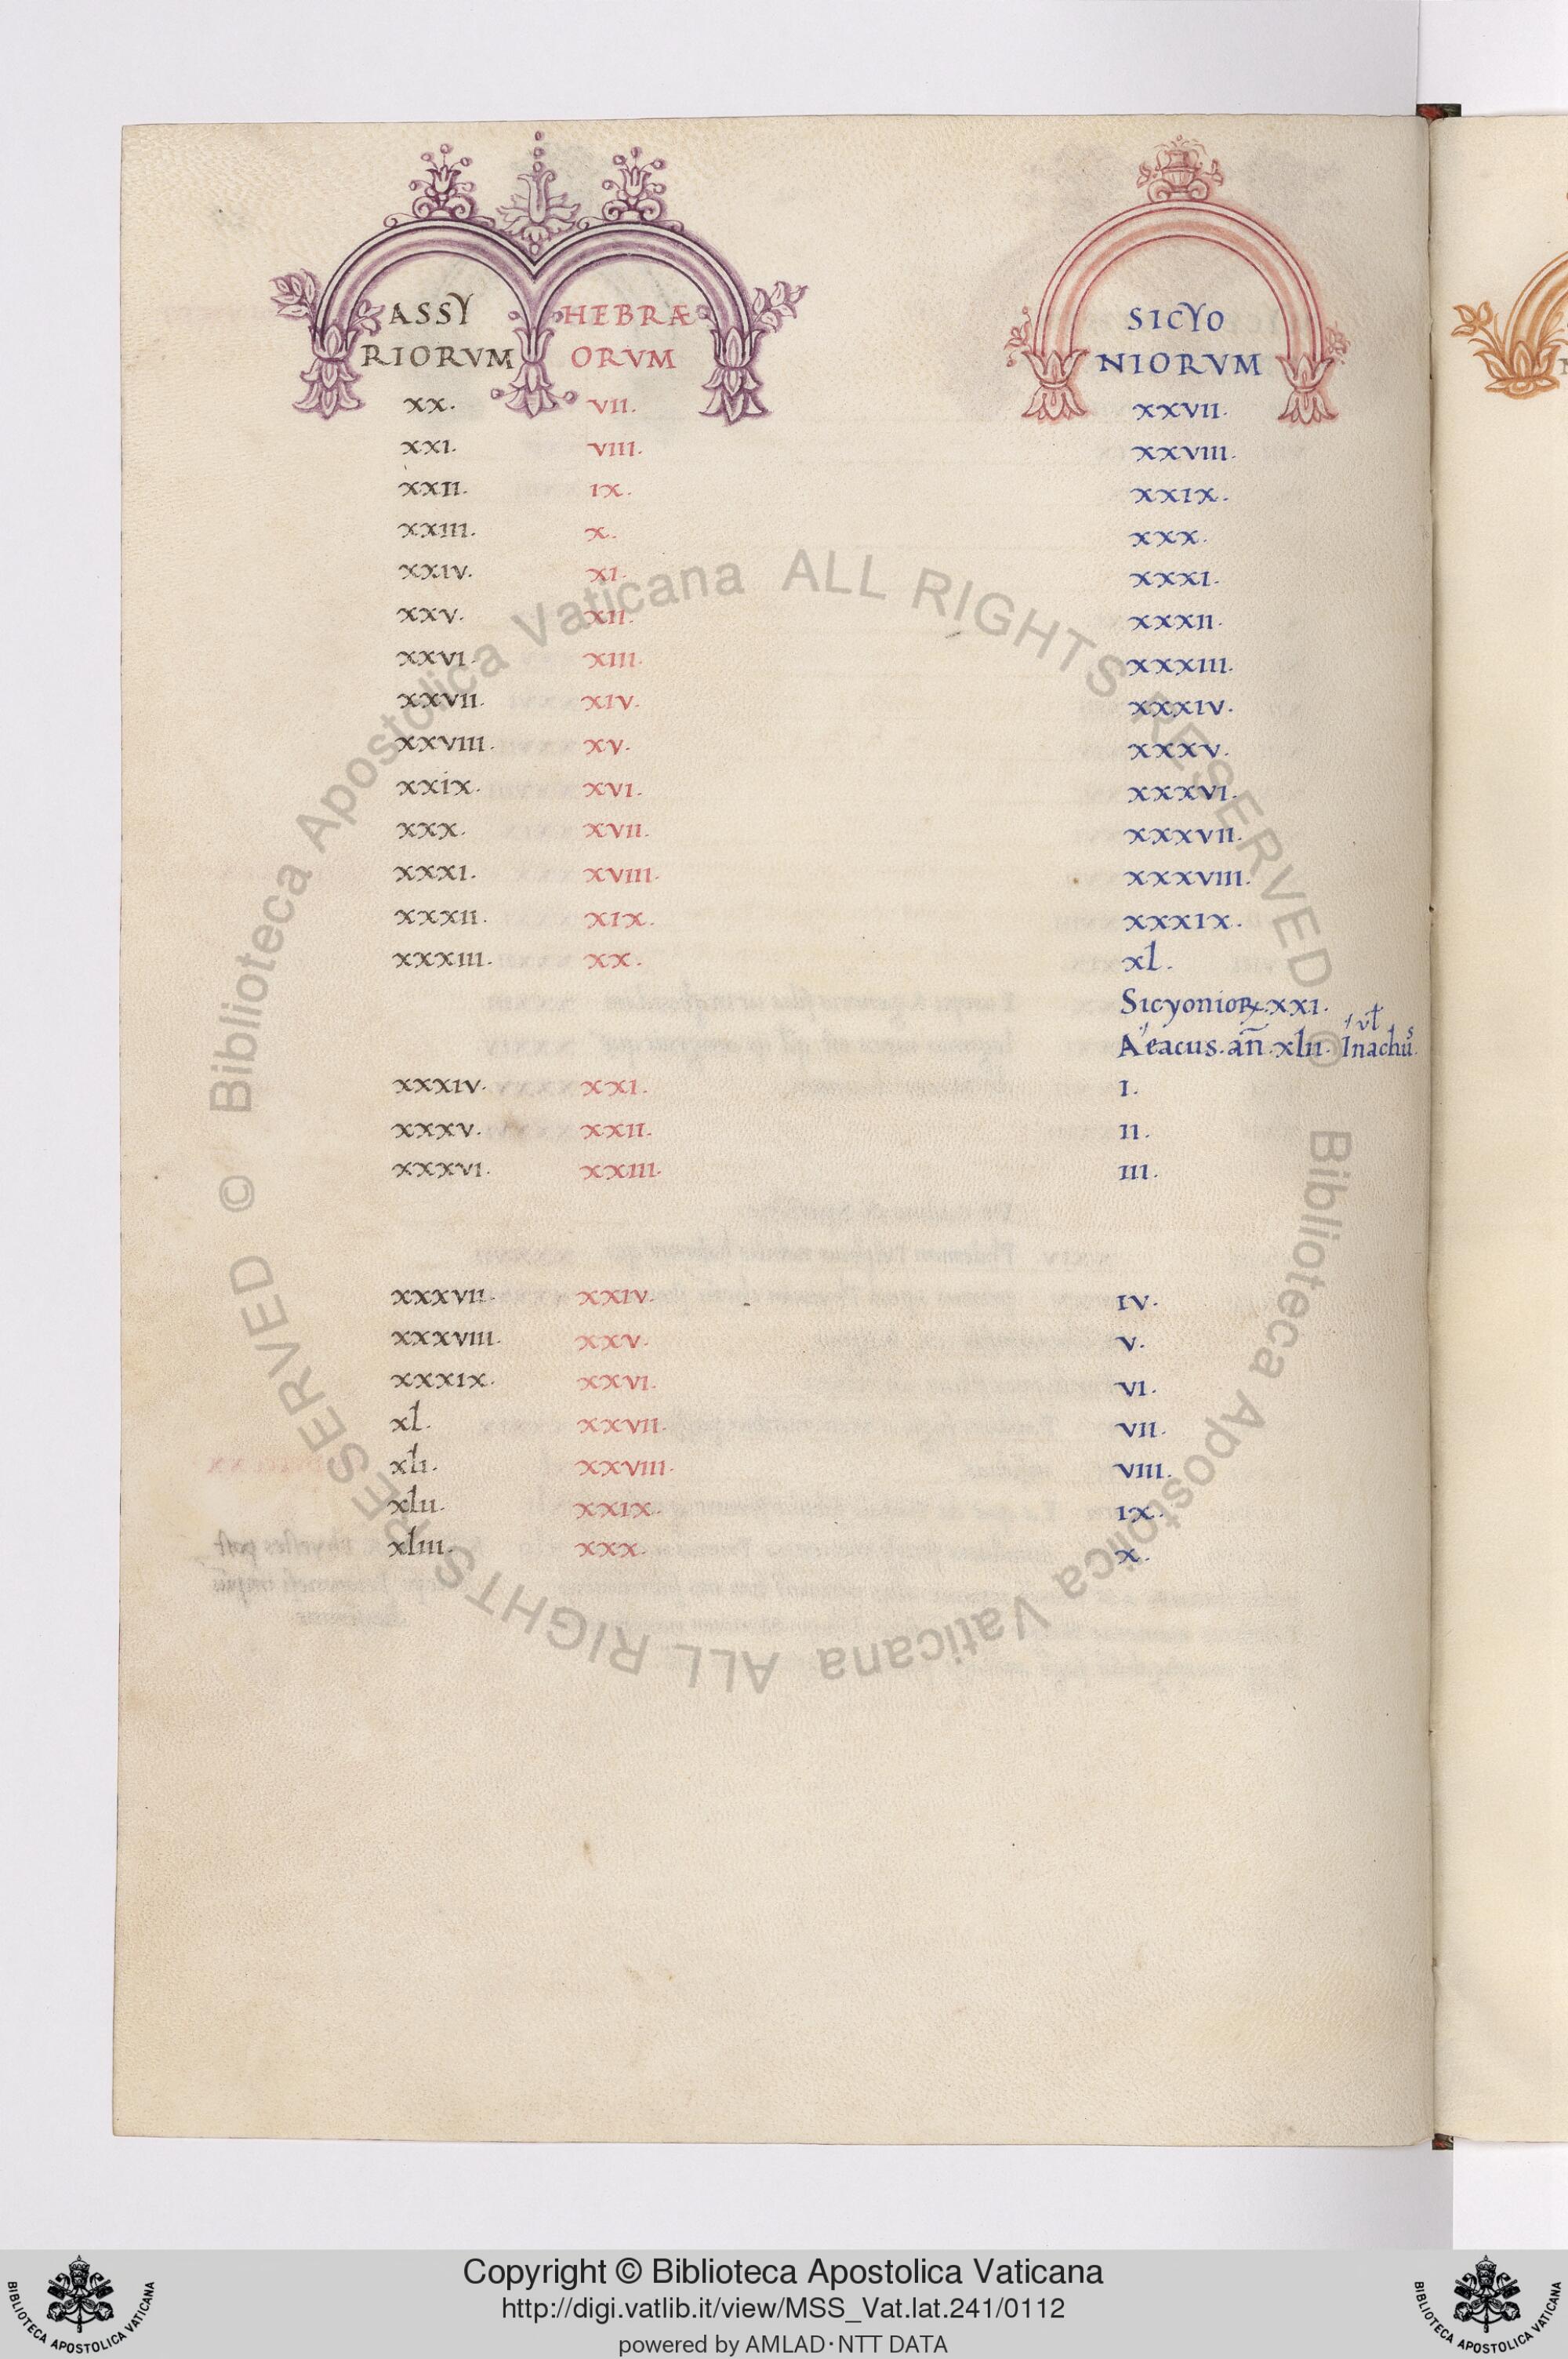 ASSY HEBRÆ SICYO
RIORVM ORVM NIORVM
XX. VII. XXVII.
XXI. VIII. XXVIII.
XXII. IX. XXIX.
XXIII. X. XXX.
XXIV. XI. XXXI.
XXV. XII. XXXII.
XXVI. XIII. XXXIII.
XXVII. XIV. XXXIV.
XXVIII. XV. XXXV.
XXIX. XVI. XXXVI.
XXX. XVII. XXXVII.
XXXI. XVIII. XXXVIII.
XXXII. XIX. XXXIX.
XXXIII. XX. xl.
Sicyonioꝝ. XXI.
Aeacus. an̄. xlii. vł Inachus.
XXXIV. XXI. I.
XXXV. XXII. II.
XXXVI. XXIII. III.
XXXVII. XXIV. IV.
XXXVIII. XXV. V.
XXXIX. XXVI. VI.
xl. XXVII. VII.
xli. XXVIII. VIII.
xlii. XXIX. IX.
xliii. XXX. X.
© Biblioteca Apostolica Vaticana ALL RIGHTS RESERVED
© Biblioteca Apostolica Vaticana ALL RIGHTS RESERVED
Copyright © Biblioteca Apostolica Vaticana
http://digi.vatlib.it/view/MSS_Vat.lat.241/0112
powered by AMLAD·NTT DATA
BIBLIOTECA APOSTOLICA VATICANA
BIBLIOTECA APOSTOLICA VATICANA